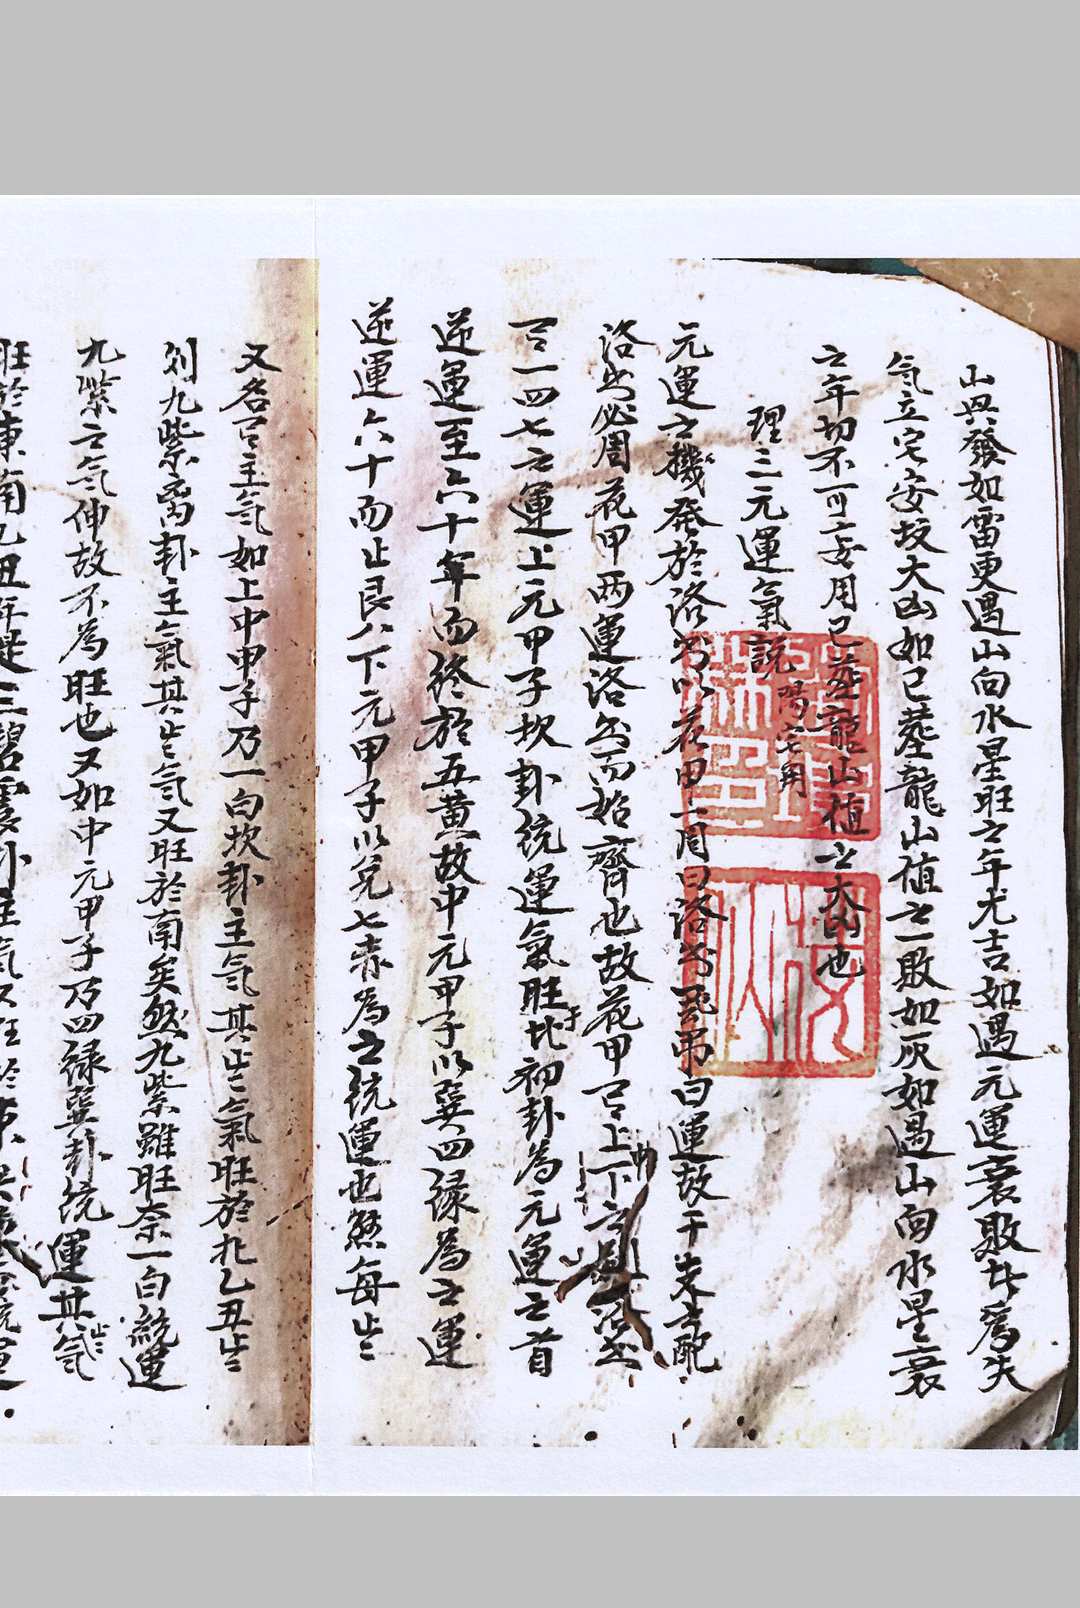 山興發如雷更遇山向水星旺之年尤吉如遇元運衰敗廿為失
氣立宅安坟大凶如已塟龍山值之一敗如灰如遇山向水星衰
之年切不可妄用已塟龍山值之大凶也
理三元運氣說陽宅用
元運之機發於洛书以花甲一周曰洛书飛吊曰運故干支去配
洛书必周花甲两運洛书而始齊也故花甲上中下之洛书
一四七之運上元甲子坎卦统運氣旺於北初卦為元運之首
逆運至六十年而终於五黄故中元甲子以巽四緑為之運
逆運六十而止艮八下元甲子以兑七赤為之统運也然每年
又各主氣如上中甲子乃一白坎卦主氣其年氣旺於北乙丑年
列九紫离卦主氣其年氣又旺於南矣然九紫雖旺奈一白統運
九紫之氣伸故不為旺也又如中元甲子乃四緑巽卦统運其年氣
旺於東南乙丑年是三碧震卦主氣又旺於東